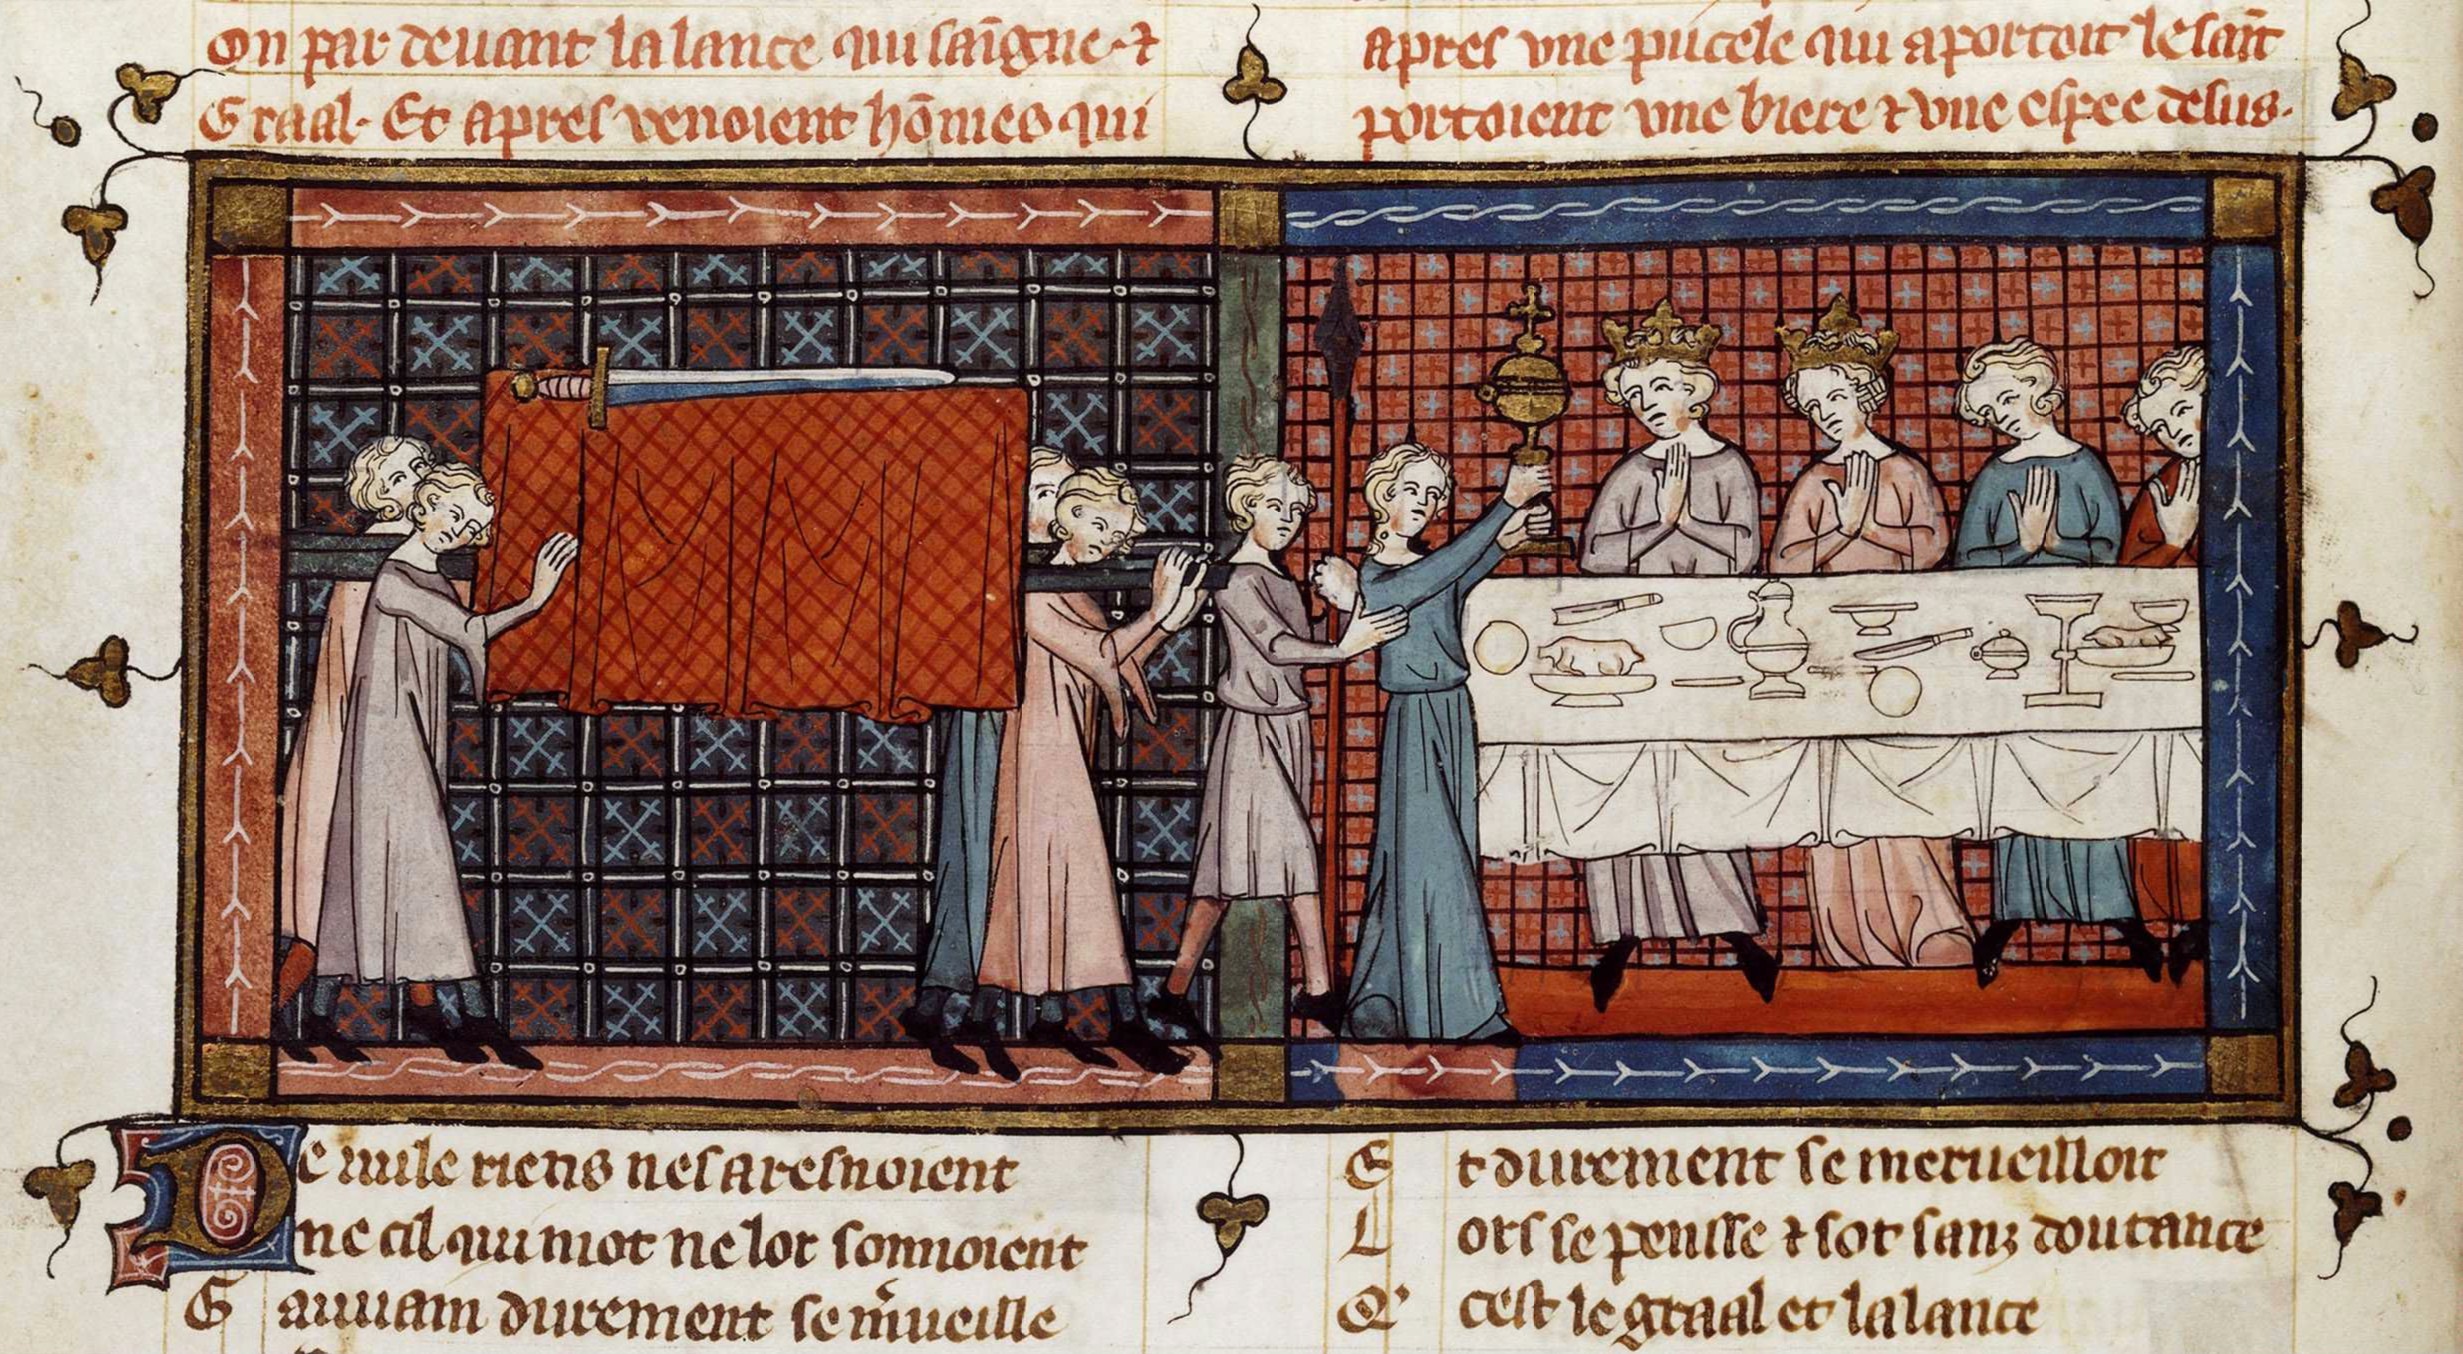 On par deuant la lance qui saīgne ⁊ apres vne pucele qui aportoit le saīt
Graal. Et apres venoient hōmes qui portoient vne biere ⁊ vne espee desus.
De nule riens nes aresnoient
ne cil qui mot ne lor sonnoient
Gauuain durement se m̓ueille
Et durement se merueilloit
Lors se pensse ⁊ sot sanz doutance
Q' cest le graal et la lance